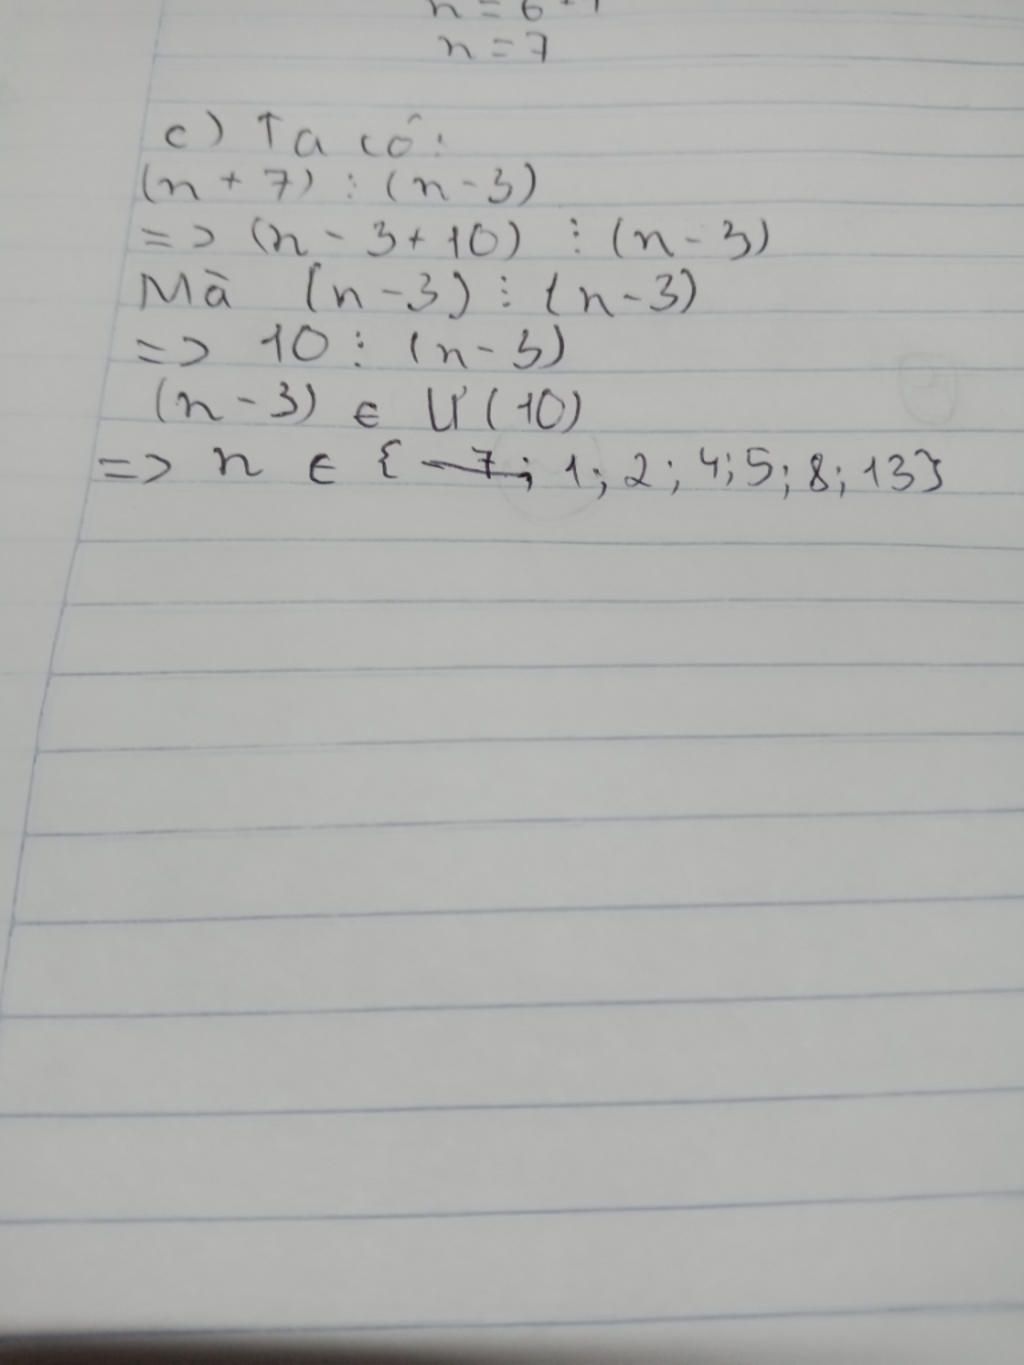 n = 6 + 1
n = 7
c) Ta có:
(n + 7) ⋮ (n - 3)
=> (n - 3 + 10) ⋮ (n - 3)
Mà (n - 3) ⋮ (n - 3)
=> 10 ⋮ (n - 3)
(n - 3) ∈ Ư(10)
=> n ∈ {-7; 1; 2; 4; 5; 8; 13}